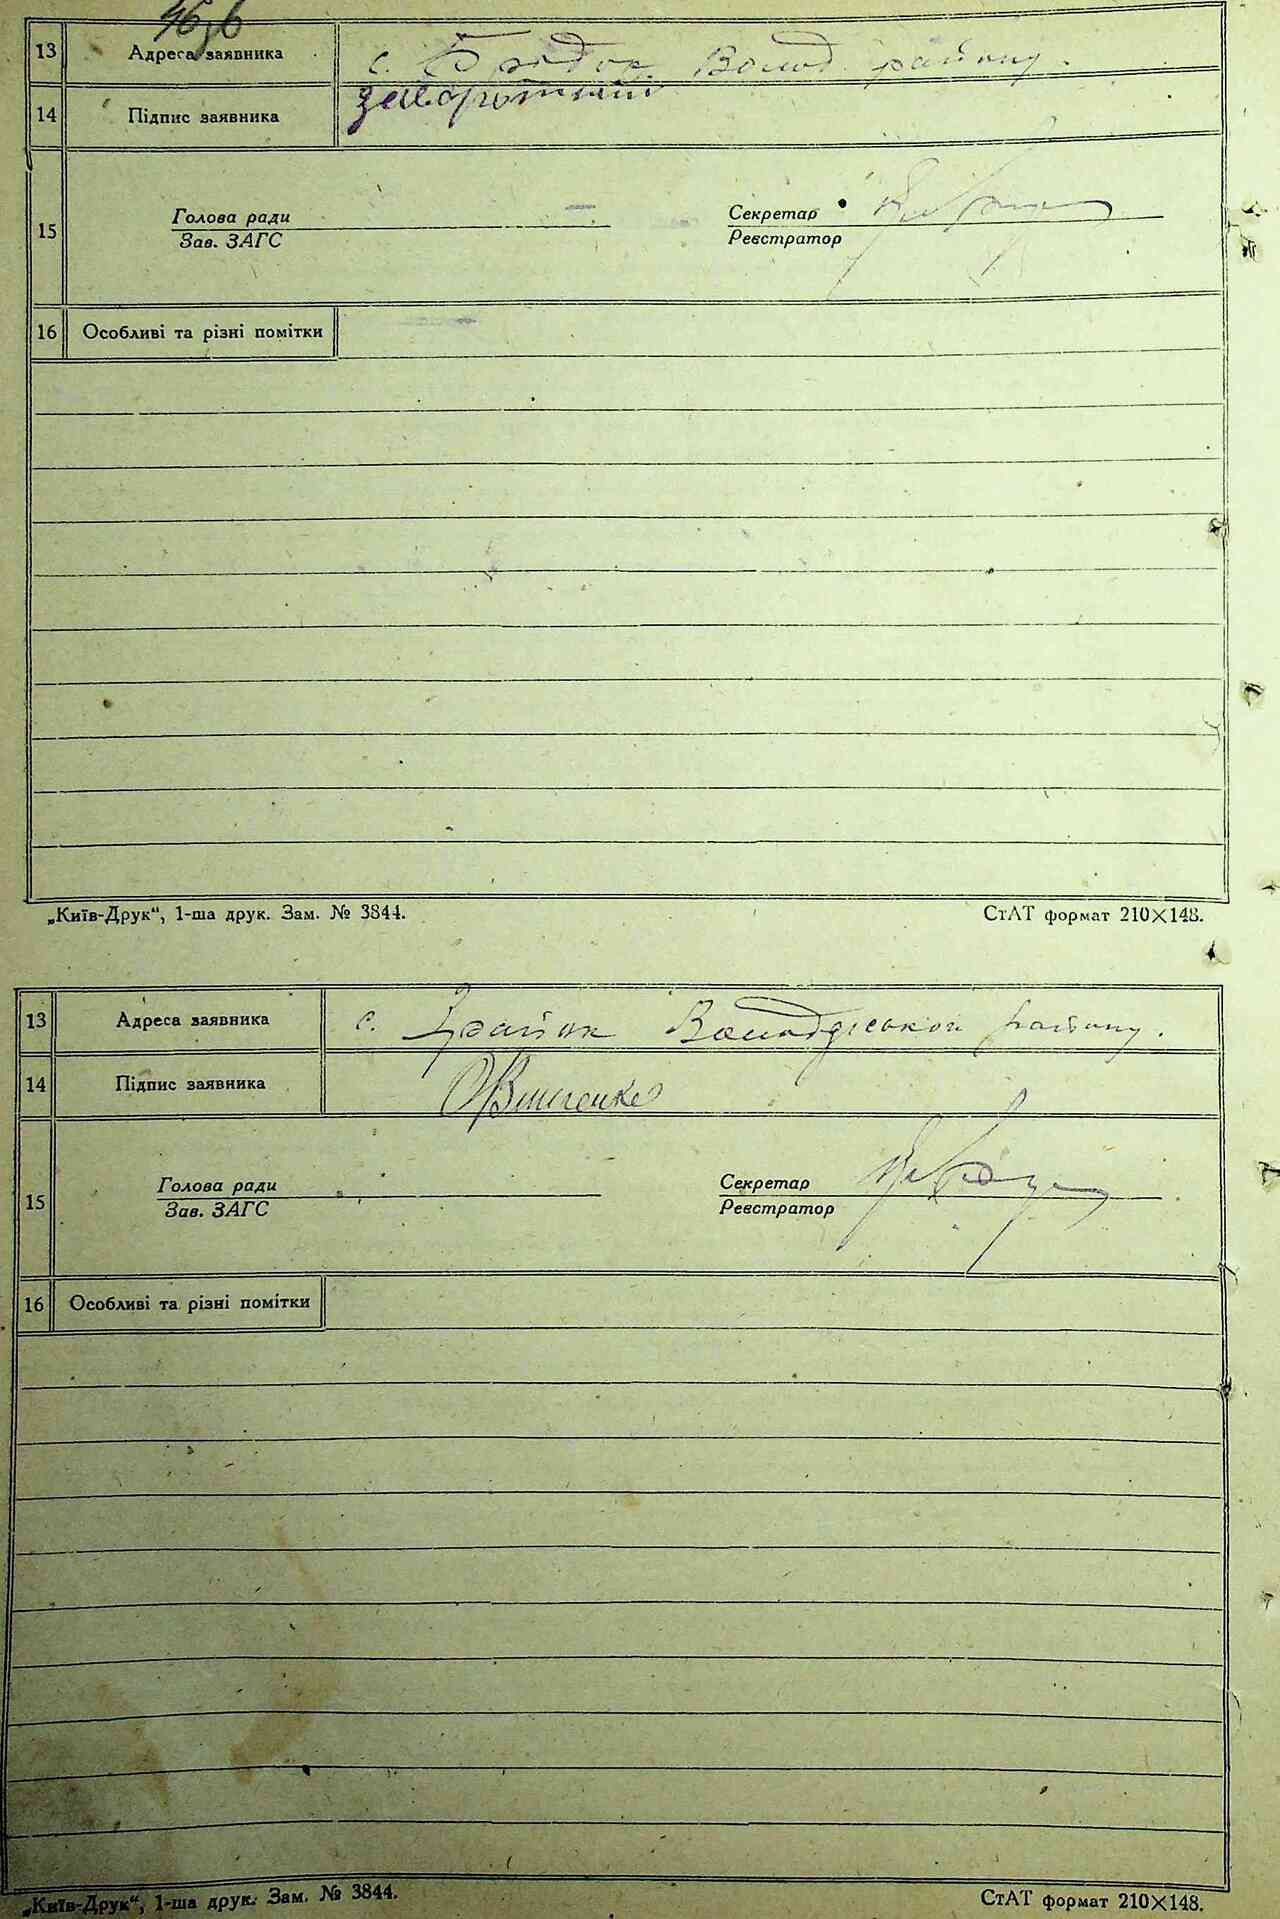 46зв
13 Адреса заявника с. Волод. району.
14 Підпис заявника
15 Голова ради Секретар
Зав. ЗАГС Реєстратор
16 Особливі та різні помітки
„Київ-Друк“, 1-ша друк. Зам. № 3844. СтАТ формат 210×148.
13 Адреса заявника с. району.
14 Підпис заявника
15 Голова ради Секретар
Зав. ЗАГС Реєстратор
16 Особливі та різні помітки
„Київ-Друк“, 1-ша друк. Зам. № 3844. СтАТ формат 210×148.